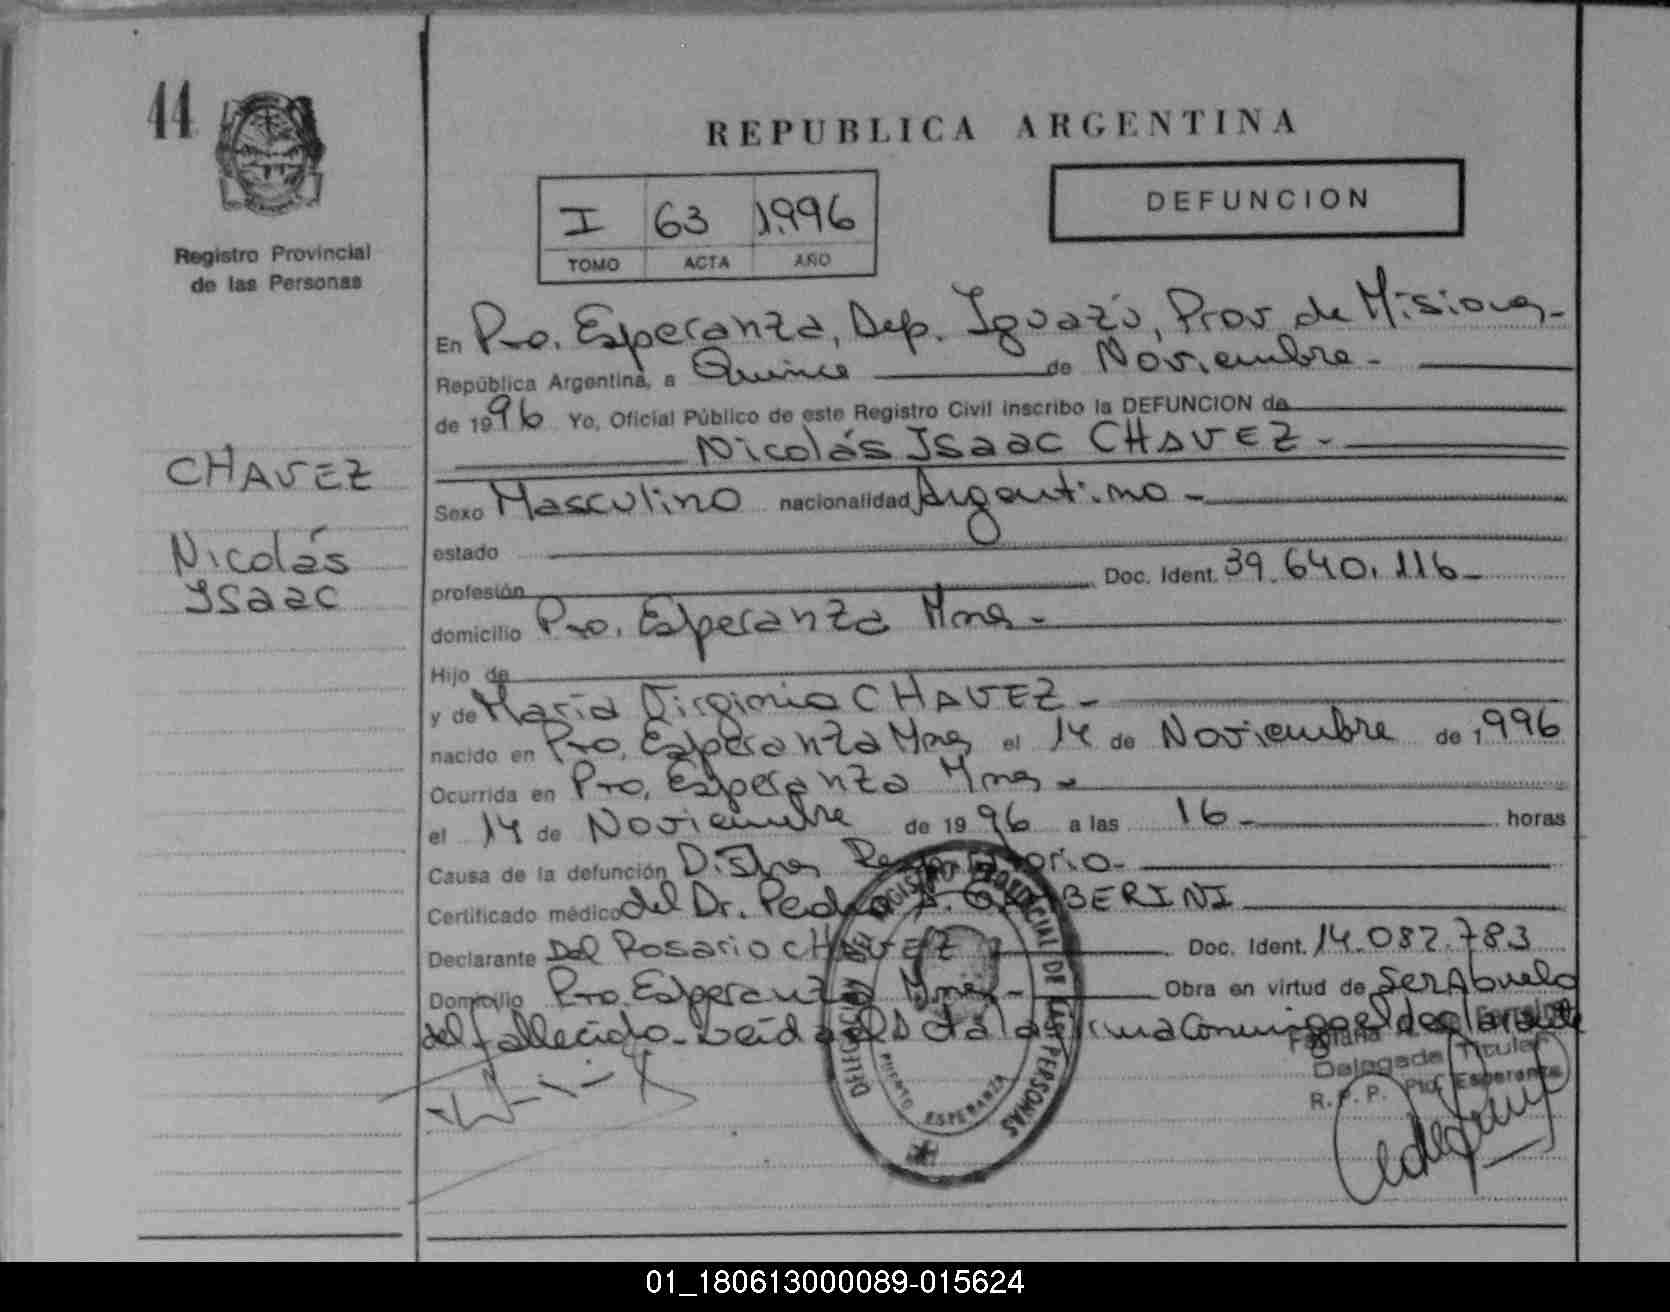 44
REPUBLICA ARGENTINA
DEFUNCION
I 63 1.996
TOMO ACTA AÑO
Registro Provincial
de las Personas
En Pto. Esperanza, Dep. Iguazú, Prov de Misiones-
República Argentina, a Quince de Noviembre-
de 1996 Yo, Oficial Público de este Registro Civil inscribo la DEFUNCION de
Nicolás Isaac CHAVEZ-
CHAVEZ
Nicolás
Isaac
Sexo Masculino nacionalidad Argentino-
estado
profesión Doc. Ident. 39.640.116-
domicilio Pto. Esperanza Mnes-
Hijo de
y de María Virginia CHAVEZ-
nacido en Pto. Esperanza Mnes el 14 de Noviembre de 1.996
Ocurrida en Pto. Esperanza Mnes-
el 14 de Noviembre de 1996 a las 16- horas
Causa de la defunción Distres Respiratorio-
Certificado médico del Dr. Pedro BERINI
Declarante Del Rosario CHAVEZ Doc. Ident. 14.082.783
Domicilio Pto. Esperanza Mnes- Obra en virtud de Ser Abuelo
del fallecido- Leída el Acta la firma Conmigo el declarante
Delegada Titular
R. P. P. Pto. Esperanza
OFICINA DEL REGISTRO PROVINCIAL DE LAS PERSONAS
PUERTO ESPERANZA
01_180613000089-015624